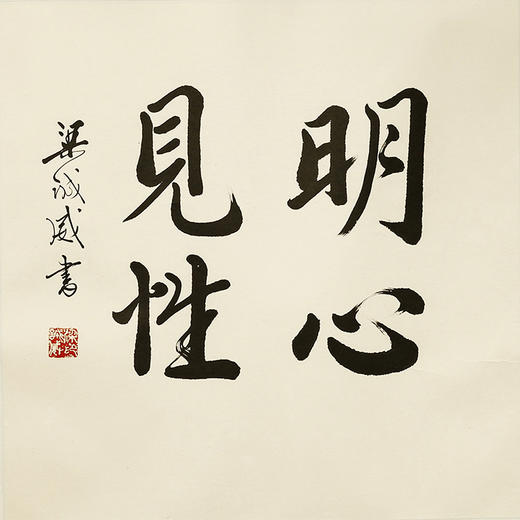 明心
見性
梁誠威書